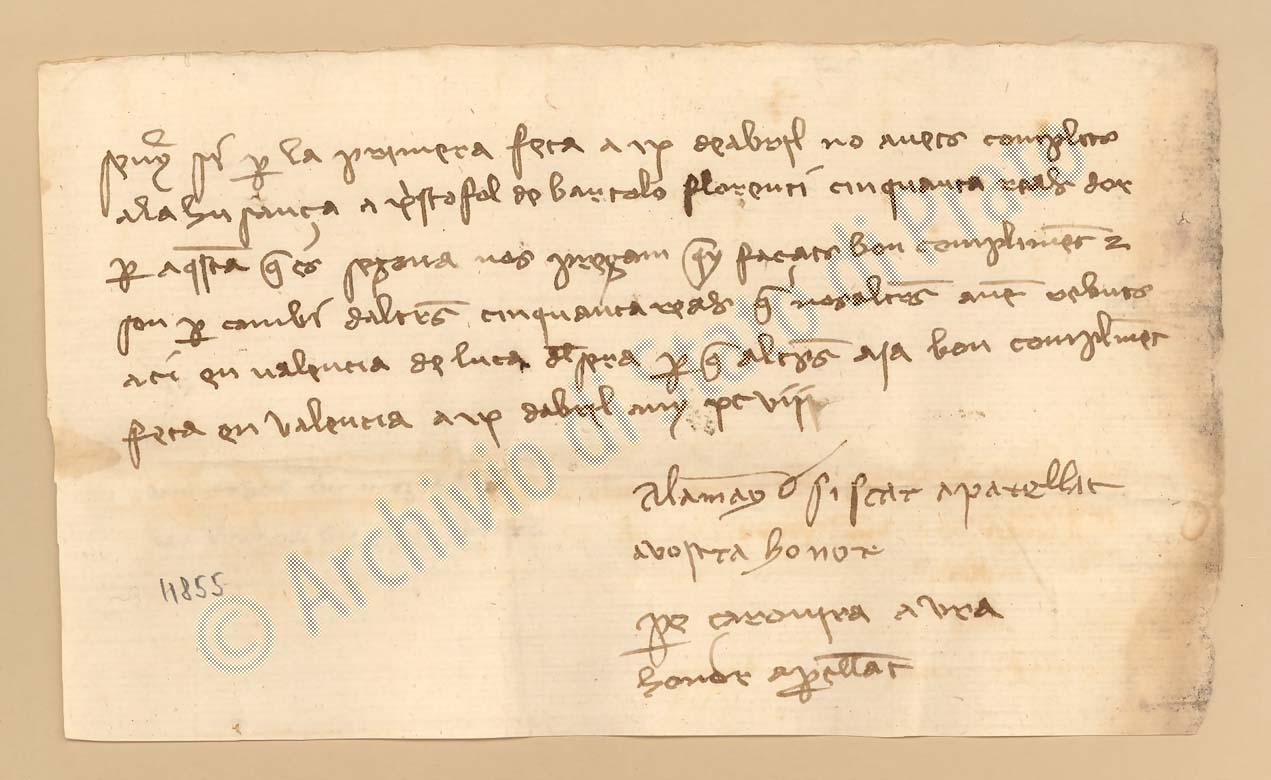 seny si p la primera feta a ix de abril no avets complets
ala husança a xpstofol de bartolo florenti cinquanta reals dor
p aqsta q es segona vos pregam q y façats bon compliment z
son p cambi daltres cinquanta reals q nosaltres avem rebuts
aci en valencia de luca del sera p q als aja bon compliment
feta en valencia a ix dabril any xcviiij
Alamay d siscar aparellat
a vostra honor
Pe carovira a vra
honor aparellat
11855
© Archivio di Stato di Prato